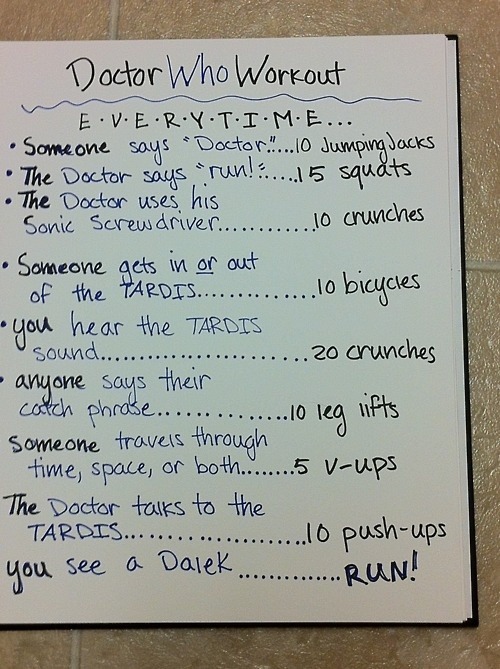 Doctor Who Workout
E·V·E·R·Y·T·I·M·E...
• Someone says "Doctor"....10 Jumping Jacks
• The Doctor says "run!".....15 squats
• The Doctor uses his
Sonic Screwdriver............10 crunches
• Someone gets in or out
of the TARDIS...............10 bicycles
• you hear the TARDIS
sound.......................20 crunches
• anyone says their
catch phrase..............10 leg lifts
Someone travels through
time, space, or both........5 v-ups
The Doctor talks to the
TARDIS....................10 push-ups
you see a Dalek .............RUN!